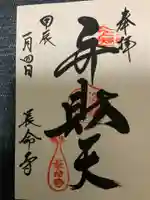 奉拝
弁財天
甲辰
一月四日
長命寺